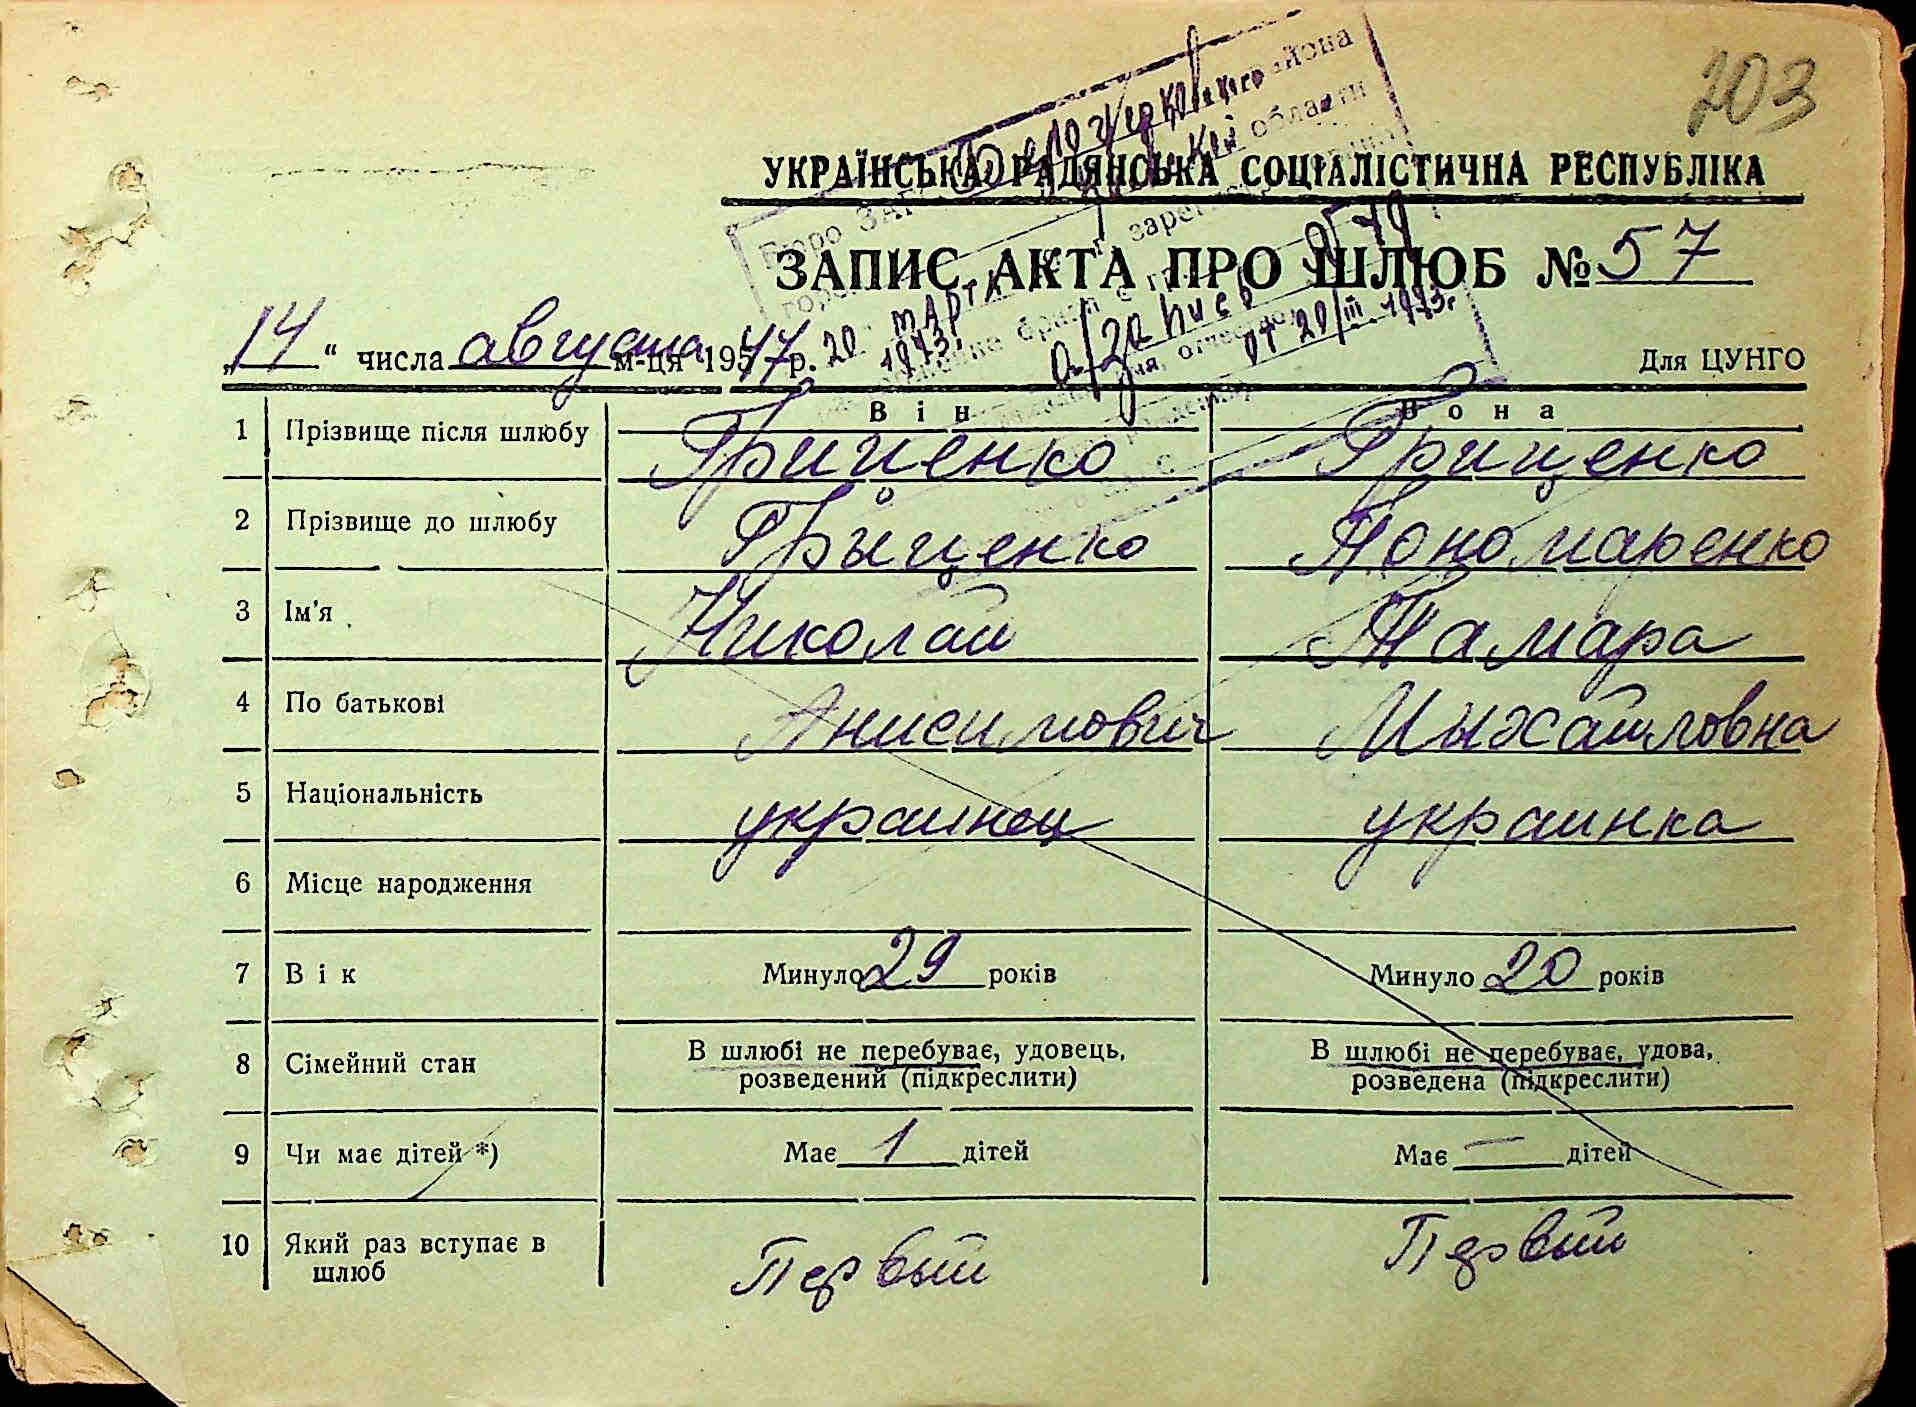 203
Белоцерковского района
Киевской области
УКРАЇНСЬКА РАДЯНСЬКА СОЦІАЛІСТИЧНА РЕСПУБЛІКА
Бюро ЗАГС
ЗАПИС АКТА ПРО ШЛЮБ № 57
20 марта 1973
а/запись
от 20/III 1973г
„14“ числа августа м-ця 1947 р.
Для ЦУНГО
Він Вона
1 Прізвище після шлюбу Гриценко Гриценко
2 Прізвище до шлюбу Грыценко Пономаренко
3 Ім'я Николай Тамара
4 По батькові Анисимович Мыхайловна
5 Національність украинец украинка
6 Місце народження
7 Вік Минуло 29 років Минуло 20 років
8 Сімейний стан В шлюбі не перебуває, удовець, В шлюбі не перебуває, удова,
розведений (підкреслити) розведена (підкреслити)
9 Чи має дітей *) Має 1 дітей Має — дітей
10 Який раз вступає в Первый Первый
шлюб